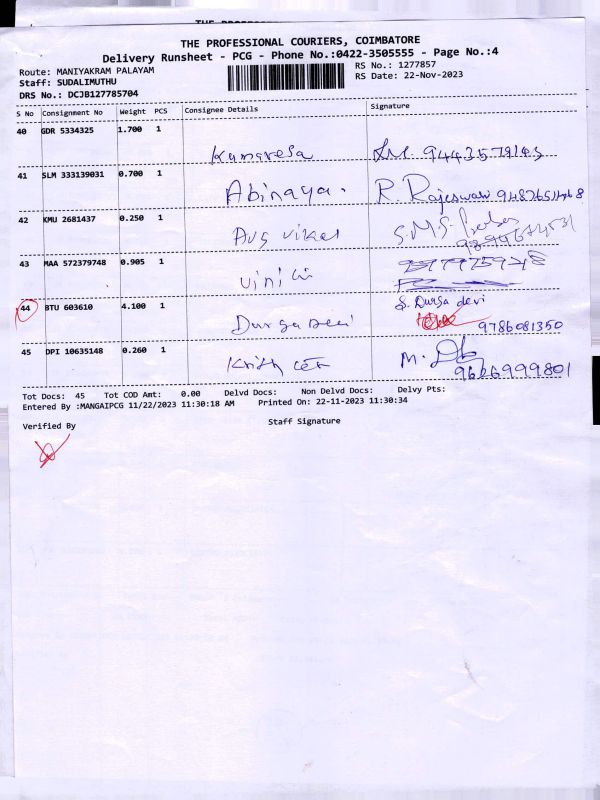 THE PROFESSIONAL COURIERS, COIMBATORE
Delivery Runsheet - PCG - Phone No.:0422-3505555 - Page No.:4
Route: MANIYAKRAM PALAYAM
RS No.: 1277857
Staff: SUDALIMUTHU
RS Date: 22-Nov-2023
DRS No.: DCJB127785704
S No Consignment No Weight PCS Consignee Details Signature
40 GDR 5334325 1.700 1
Kumaresa
41 SLM 333139031 0.700 1
Abinaya. R. Rajeswari
42 KMU 2681437 0.250 1
43 MAA 572379748 0.905 1
44 BTU 603610 4.100 1 S. Durga devi
Durga Devi 9786081350
45 DPI 10635148 0.260 1
M. 9626999801
Tot Docs: 45 Tot COD Amt: 0.00 Delvd Docs: Non Delvd Docs: Delvy Pts:
Entered By :MANGAIPCG 11/22/2023 11:30:18 AM Printed On: 22-11-2023 11:30:34
Verified By Staff Signature